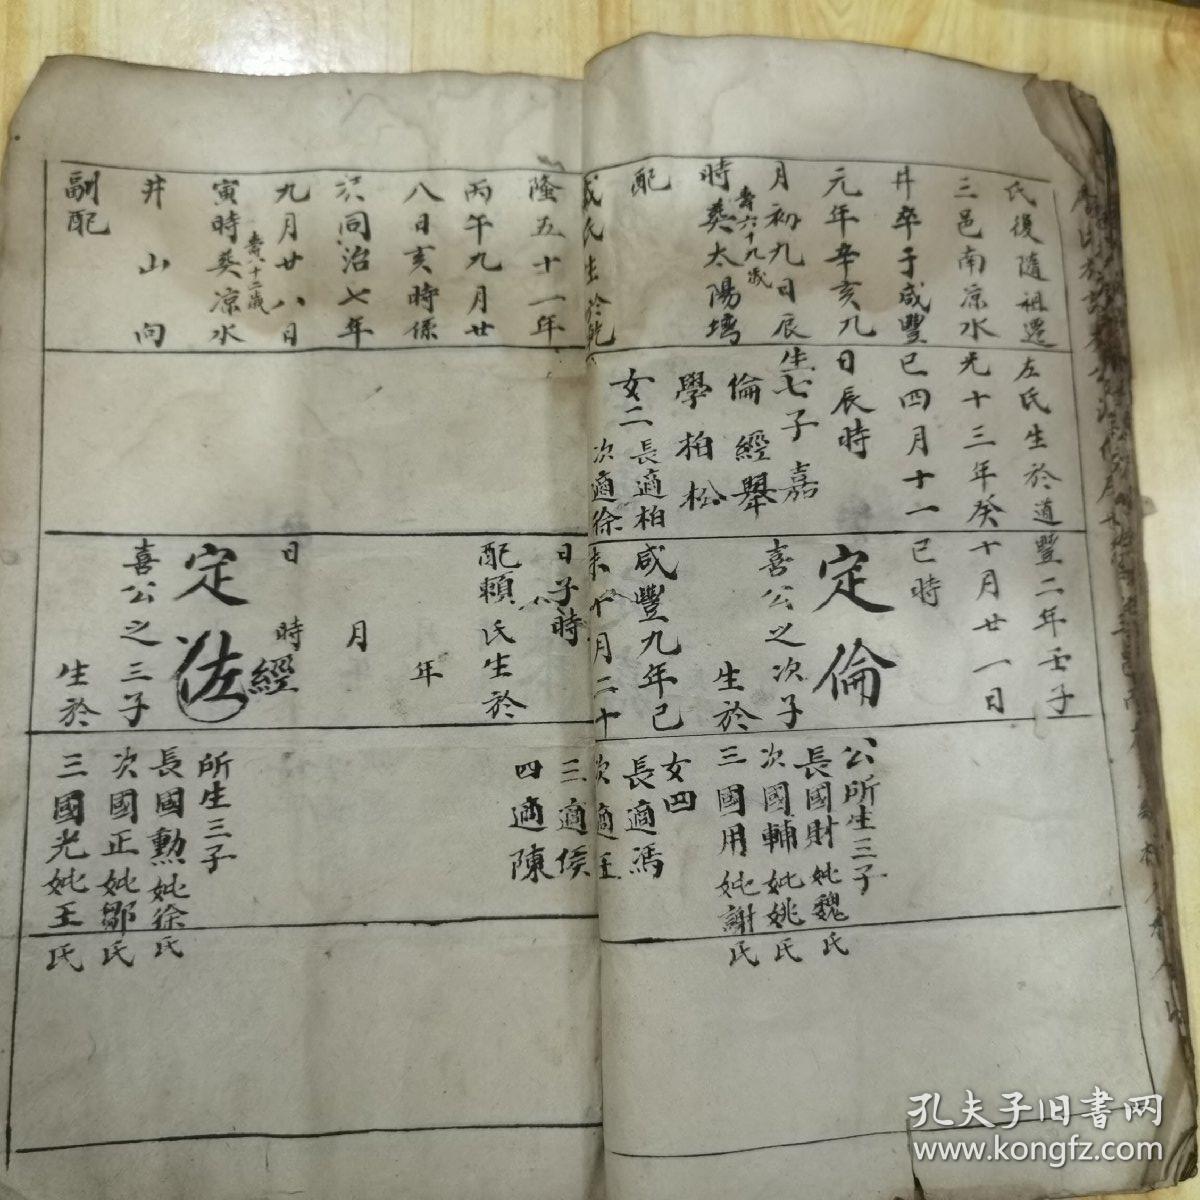 氏後隨祖遷
三邑南凉水
井卒于咸豐
元年辛亥九
月初九日辰
時葬太陽塆
壽六十九歲
配
戚氏生於乾
隆五十一年
丙午九月廿
八日亥時係
於同治七年
九月廿八日
寅時葬凉水
壽八十二歲
井山向
副配
左氏生於道
光十三年癸
巳四月十一
日辰時
生七子嘉
倫經舉
學柏松
女二長適柏
次適徐
豐二年壬子
十月廿一日
巳時
定倫
喜公之次子
生於
咸豐九年己
未十月二十
日子時
配賴氏生於
年
月
日時
經
定佐
喜公之三子
生於
公所生三子
長國財妣魏氏
次國輔妣姚氏
三國用妣謝氏
女四
長適馮
次適王
三適侯
四適陳
所生三子
長國勳妣徐氏
次國正妣鄒氏
三國光妣王氏
孔夫子旧书网
www.kongfz.com